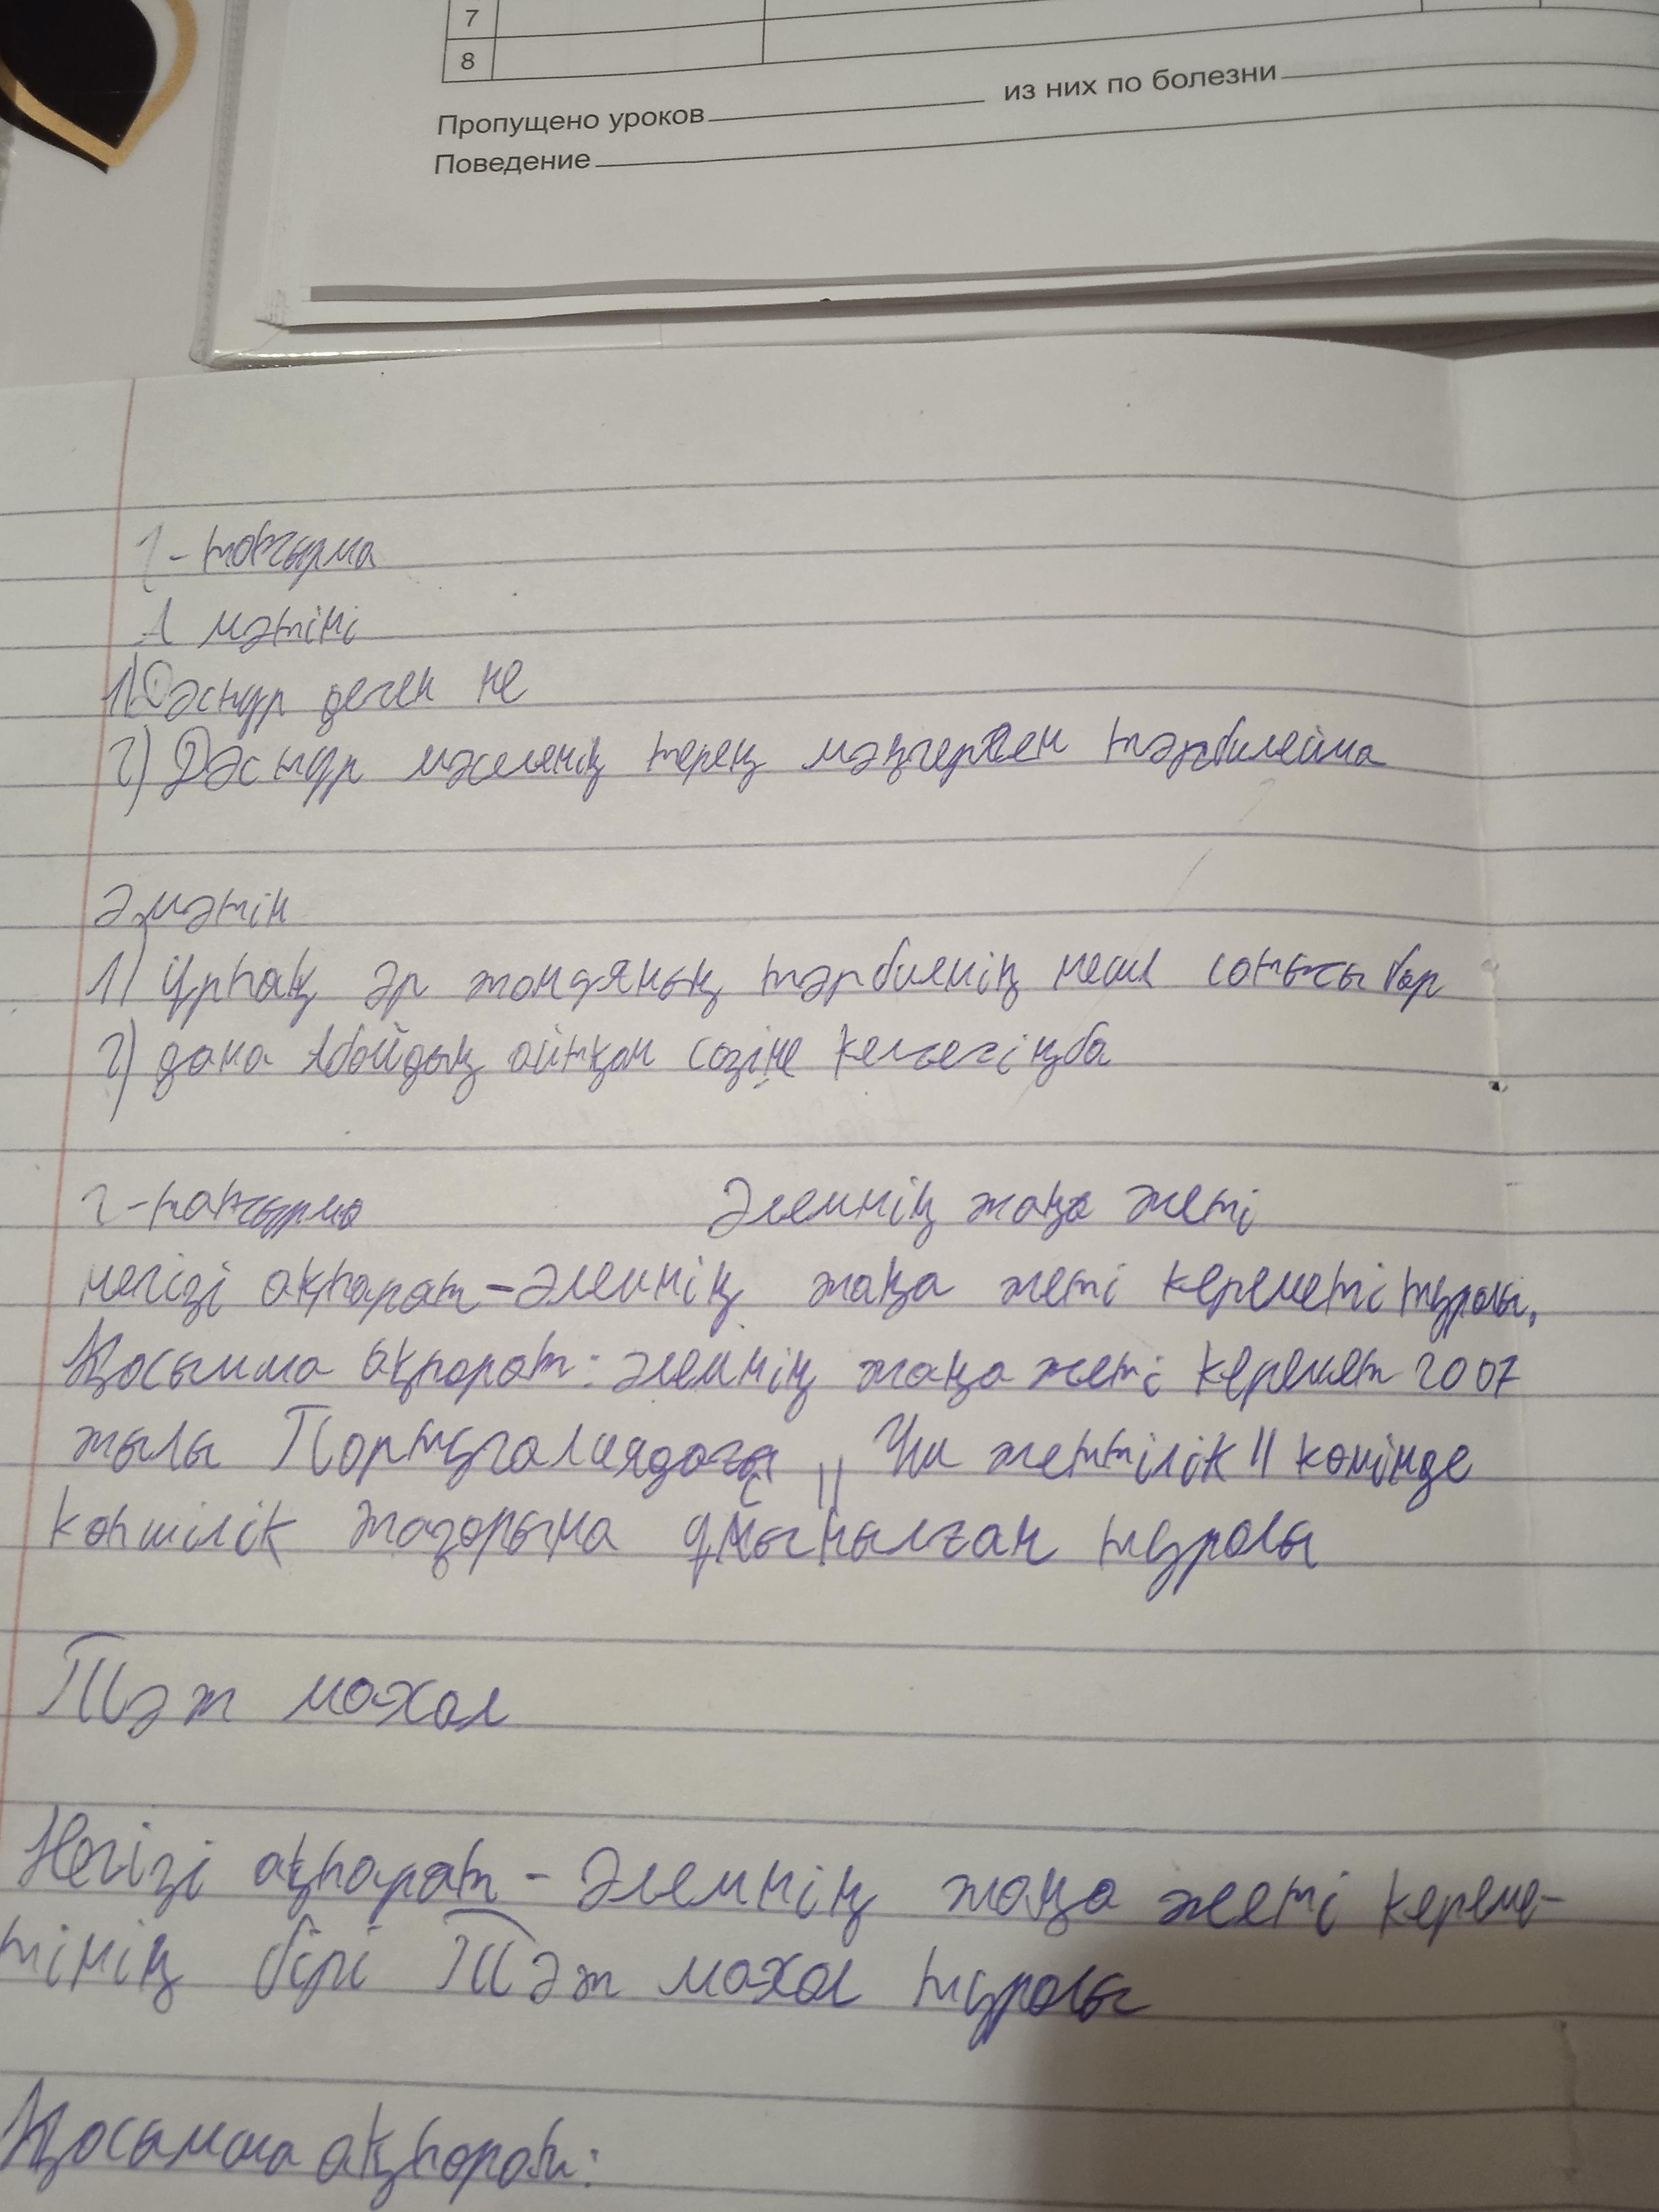 7
8
Пропущено уроков из них по болезни
Поведение
1-тапсырма
А мәтіні
1) Дәстүр деген не
2) Дәстүр мәселенің терең меңгерген тәрбилейма
Ә мәтін
1) Ұрпақ әр жандяның тәрбиенің неше сатысы бар
2) дана Абайдың айтқан сөзіне келсегіңба
2-тапсырма Әлемнің жаңа жеті
негізі ақпарат-әлемнің жаңа жеті кереметі туралы,
Қосымша ақпарат: әлемнің жаңа жеті керемет 2007
жылы Португалиядағы "Үш жеттілік" көнінде
көпшілік назарына ұсынылған туралы
Тәж махал
Негізі ақпарат - әлемнің жаңа жеті кереме-
тінің бірі Тәж махал туралы
Қосымша ақпарат: